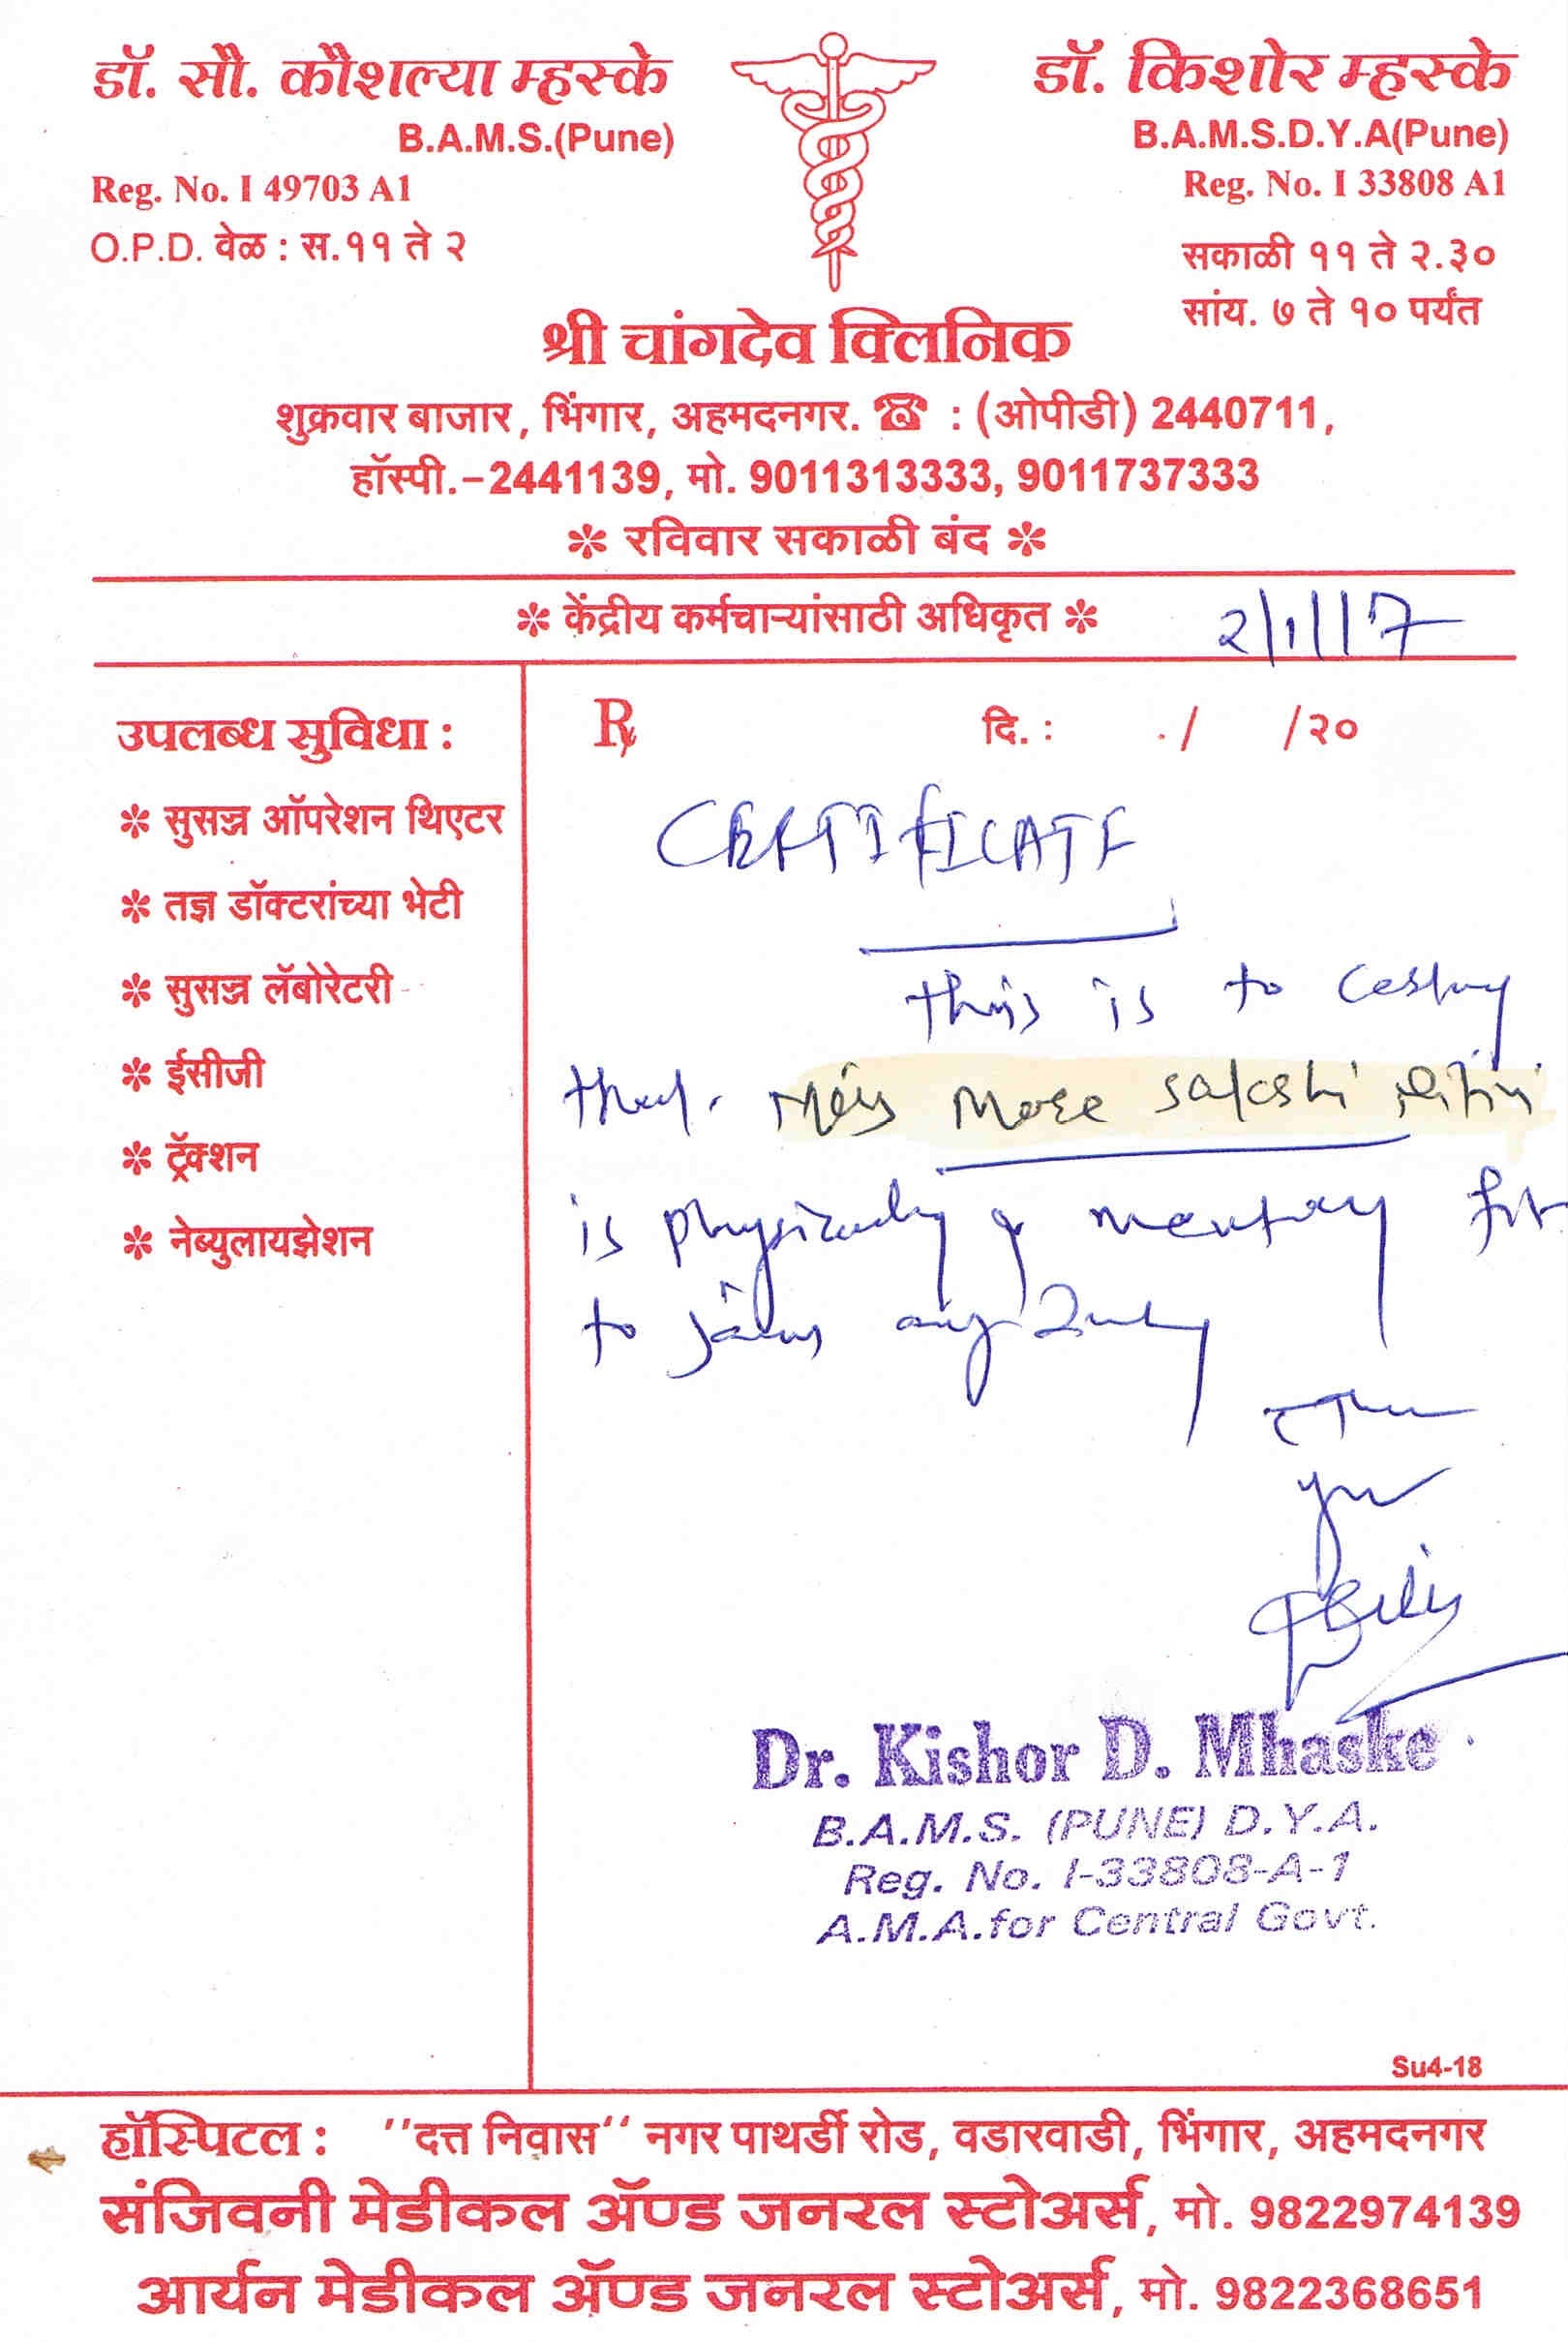 डॉ. सौ. कौशल्या म्हस्के
B.A.M.S.(Pune)
Reg. No. I 49703 A1
O.P.D. वेळ : स.११ ते २
डॉ. किशोर म्हस्के
B.A.M.S.D.Y.A(Pune)
Reg. No. I 33808 A1
सकाळी ११ ते २.३०
सांय. ७ ते १० पर्यंत
श्री चांगदेव क्लिनिक
शुक्रवार बाजार, भिंगार, अहमदनगर. ☎ : (ओपीडी) 2440711,
हॉस्पी.–2441139, मो. 9011313333, 9011737333
✻ रविवार सकाळी बंद ✻
✻ केंद्रीय कर्मचाऱ्यांसाठी अधिकृत ✻
2/1/17
उपलब्ध सुविधा :
✻ सुसज्ज ऑपरेशन थिएटर
✻ तज्ञ डॉक्टरांच्या भेटी
✻ सुसज्ज लॅबोरेटरी
✻ ईसीजी
✻ ट्रॅक्शन
✻ नेब्युलायझेशन
℞ दि. : / /२०
CERTIFICATE
this is to certify
that Miss More Sakshi Nitin
is physically & mentally fit
to join any
Dr. Kishor D. Mhaske
B.A.M.S. (PUNE) D.Y.A.
Reg. No. I-33808-A-1
A.M.A.for Central Govt.
Su4-18
हॉस्पिटल : ''दत्त निवास'' नगर पाथर्डी रोड, वडारवाडी, भिंगार, अहमदनगर
संजिवनी मेडीकल ॲण्ड जनरल स्टोअर्स, मो. 9822974139
आर्यन मेडीकल ॲण्ड जनरल स्टोअर्स, मो. 9822368651